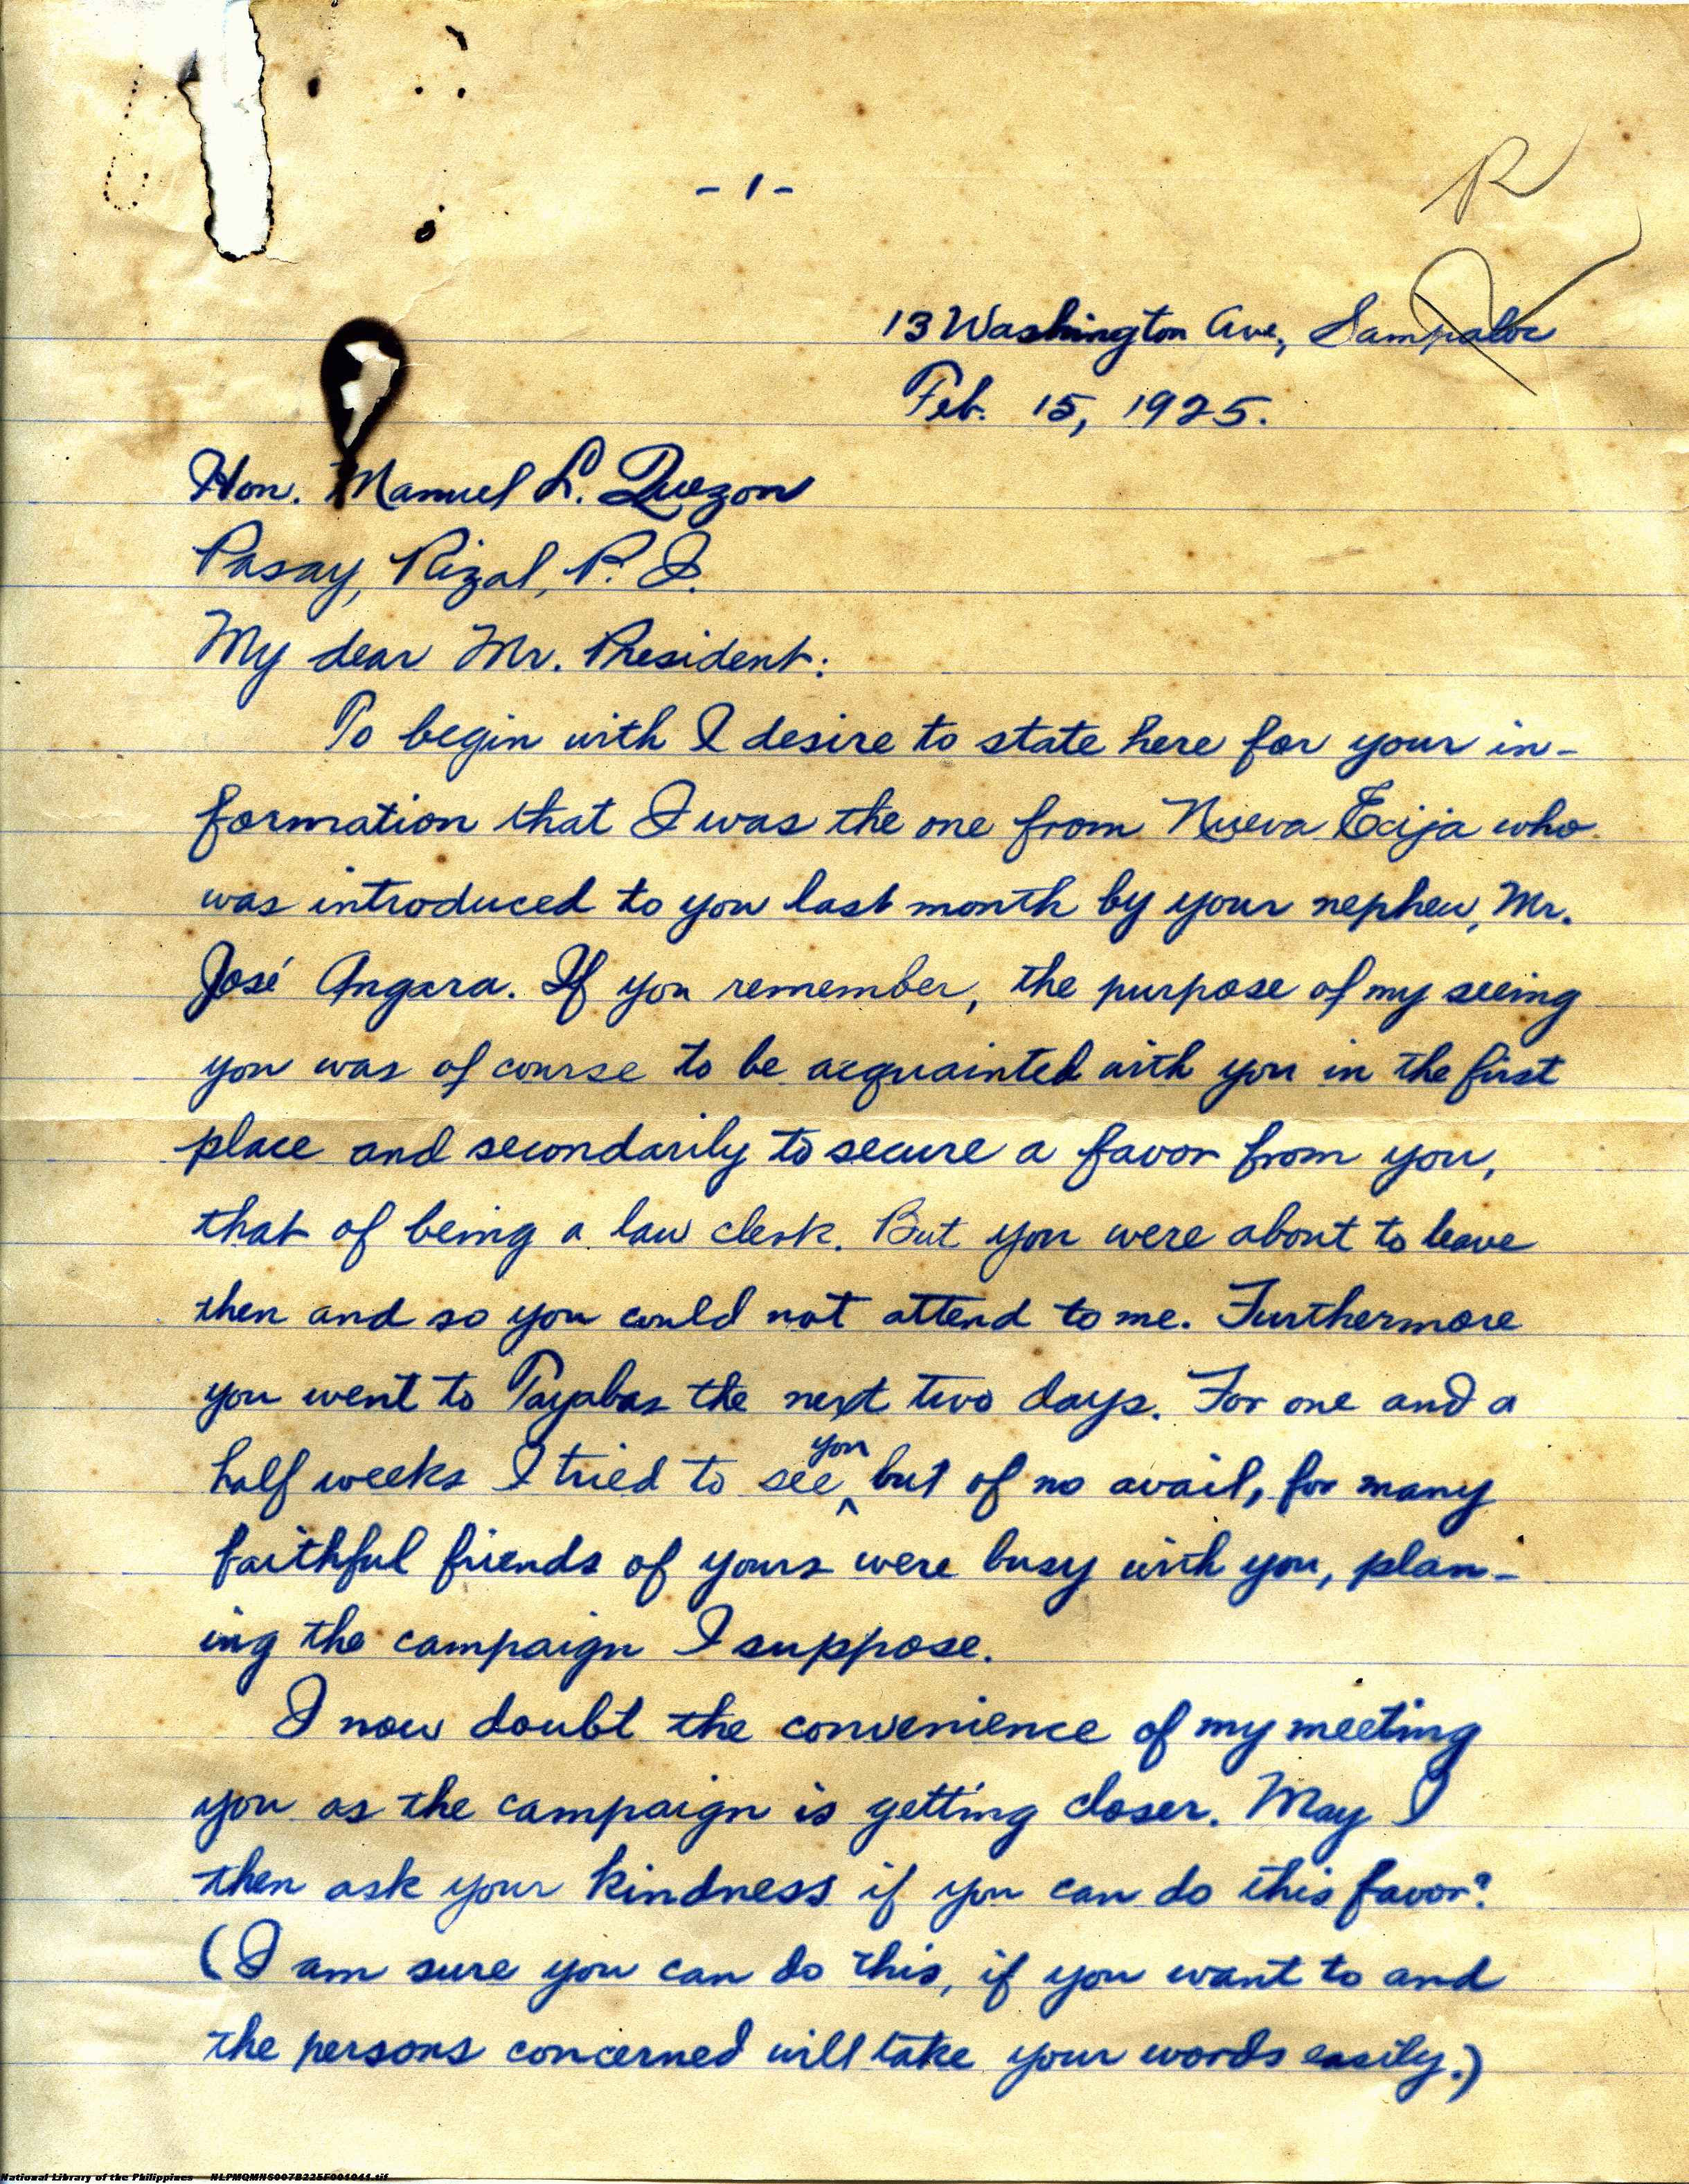 - 1 -
R
13 Washington Ave., Sampaloc
Feb. 15, 1925.
Hon. Manuel L. Quezon
Pasay, Rizal, P. I.
My dear Mr. President:
To begin with I desire to state here for your in-
formation that I was the one from Nueva Ecija who
was introduced to you last month by your nephew, Mr.
José Angara. If you remember, the purpose of my seeing
you was of course to be acquainted with you in the first
place and secondarily to secure a favor from you,
that of being a law clerk. But you were about to leave
then and so you could not attend to me. Furthermore
you went to Tayabas the next two days. For one and a
half weeks I tried to see you but of no avail, for many
faithful friends of yours were busy with you, plan-
ing the campaign I suppose.
I now doubt the convenience of my meeting
you as the campaign is getting closer. May I
then ask your kindness if you can do this favor?
(I am sure you can do this, if you want to and
the persons concerned will take your words easily.)
National Library of the Philippines NLPMQMNS007B225F001041.tif